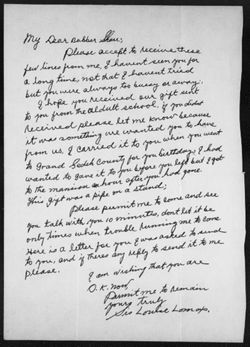 My Dear Babber Shaw;
Please accept to receive these
few lines from me, I havent seen you for
a long time, not that I havent tried
but you were always too bussy or away.
I hope you received our gift sent
to you from the adult school, if you didnt
received please let me know because
it was something we wanted you to have
from us. I carried it to you when you went
to Grand Gedeh County for you birthday, I had
wanted to gave it to you before you left but I got
to the mansion an hour after you had gone.
This gyft was a pipe on a stand;
Please permit me to come and see
you talk with you 10 minutes, dont let it be
only times when trouble running me to come
Here is a letter for you I was asked to send
to you, and if theres any reply to send it to me
please.
I am wishing that you are
O.K. now
Permit me to remain
yours truly
Sis Louise Lomax,